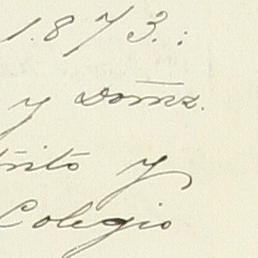 1.873.:
y Domz.
trito y
Colegio